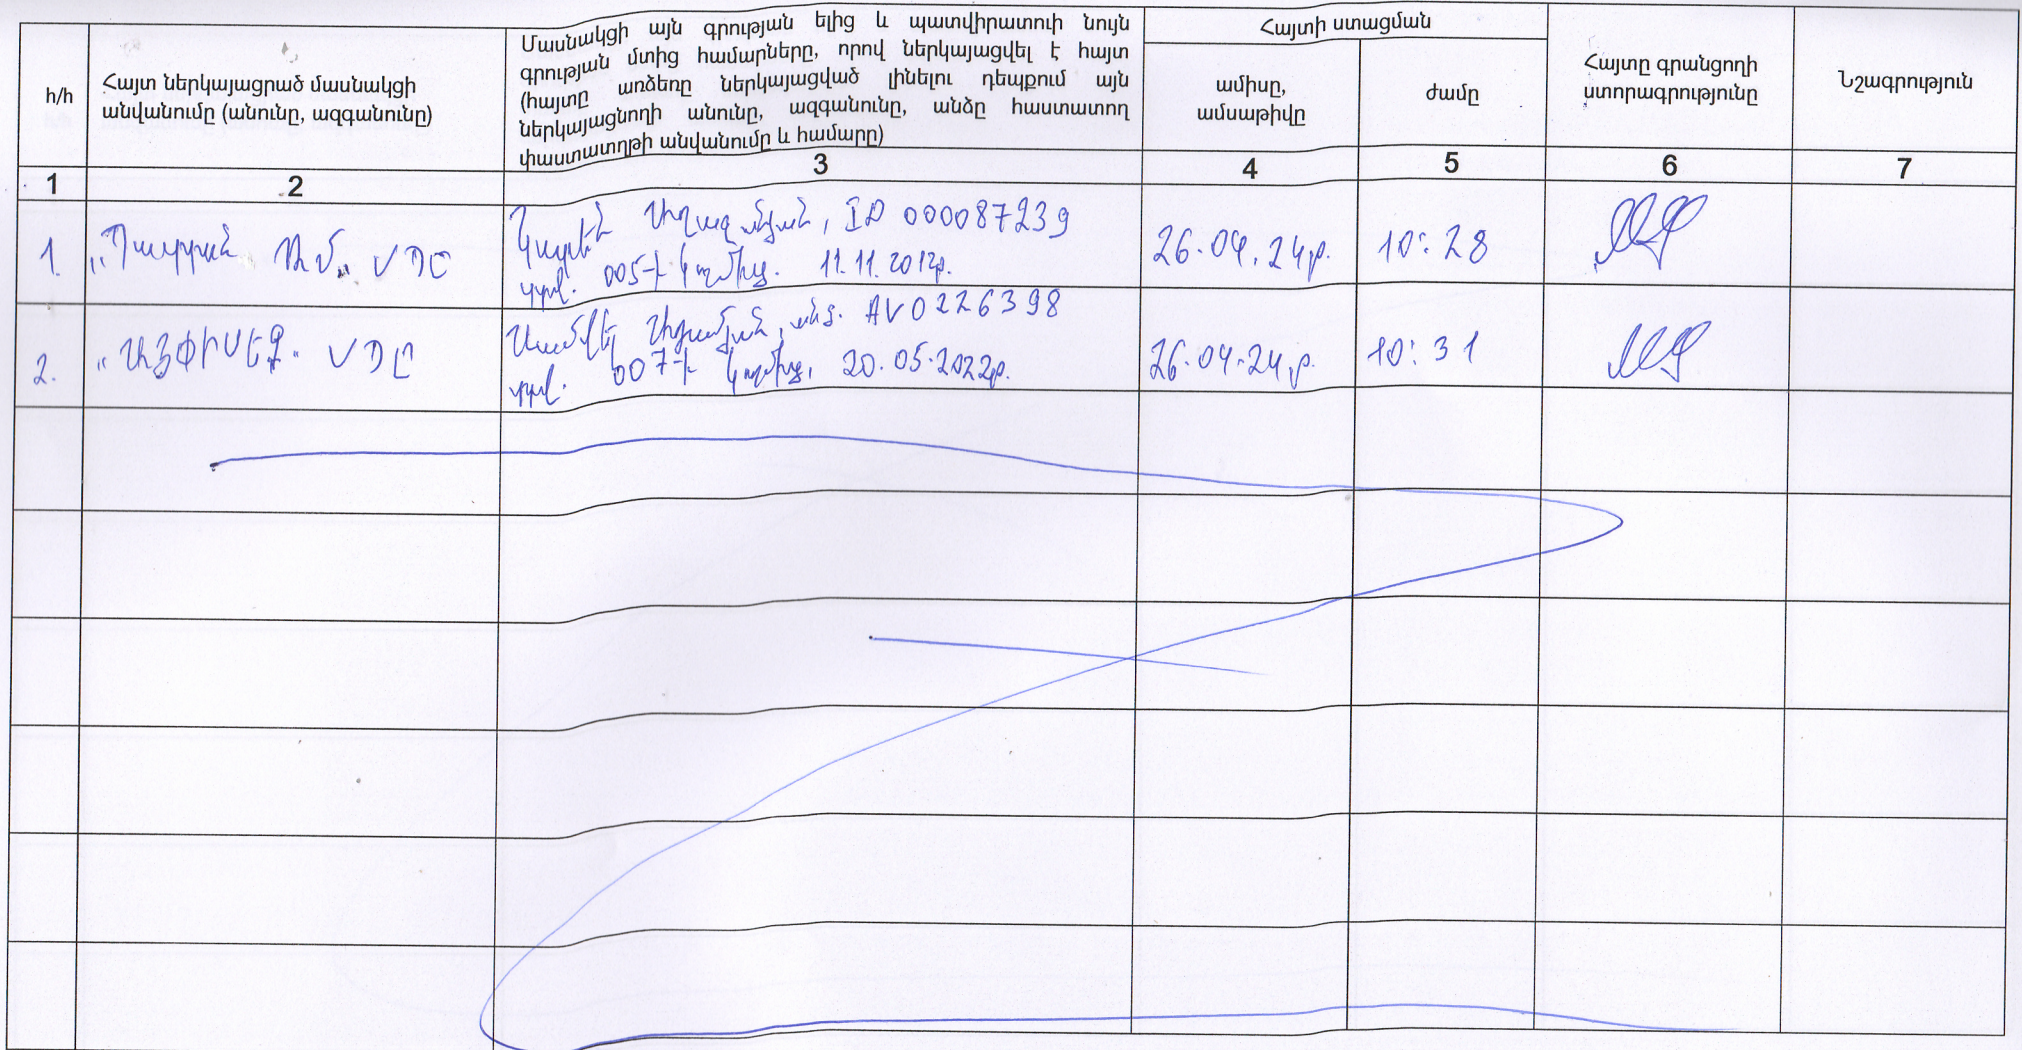 հ/հ
Հայտ ներկայացրած մասնակցի
անվանումը (անունը, ազգանունը)
Մասնակցի այն գրության ելից և պատվիրատուի նույն
գրության մտից համարները, որով ներկայացվել է հայտ
(հայտը առձեռը ներկայացված լինելու դեպքում այն
ներկայացնողի անունը, ազգանունը, անձը հաստատող
փաստատղթի անվանումը և համարը)
Հայտի ստացման
ամիսը,
ամսաթիվը
ժամը
Հայտը գրանցողի
ստորագրությունը
Նշագրություն
1 2 3 4 5 6 7
1.
ՍՊԸ
Կարեն ID 000087239
005-ի կողմից. 11.11.2012թ.
26.04.24թ.
10:28
2.
ՍՊԸ
AV0226398
007-ի կողմից, 20.05.2022թ.
26.04.24թ.
10:31